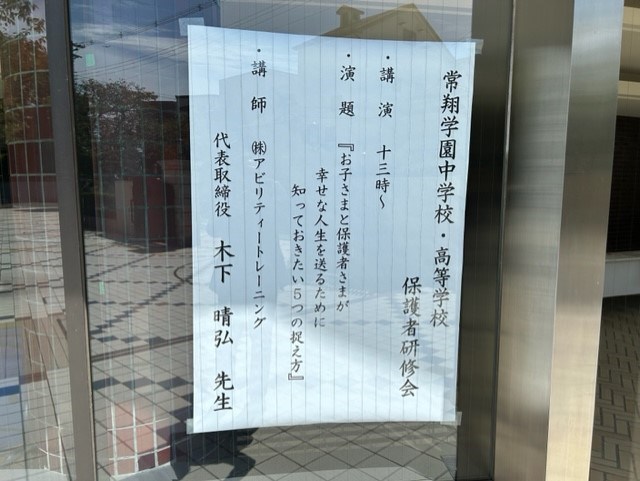 常翔学園中学校・高等学校
保護者研修会
・講演 十三時～
・演題 『お子さまと保護者さまが
幸せな人生を送るために
知っておきたい5つの捉え方』
・講師 ㈱アビリティートレーニング
代表取締役 木下 晴弘 先生